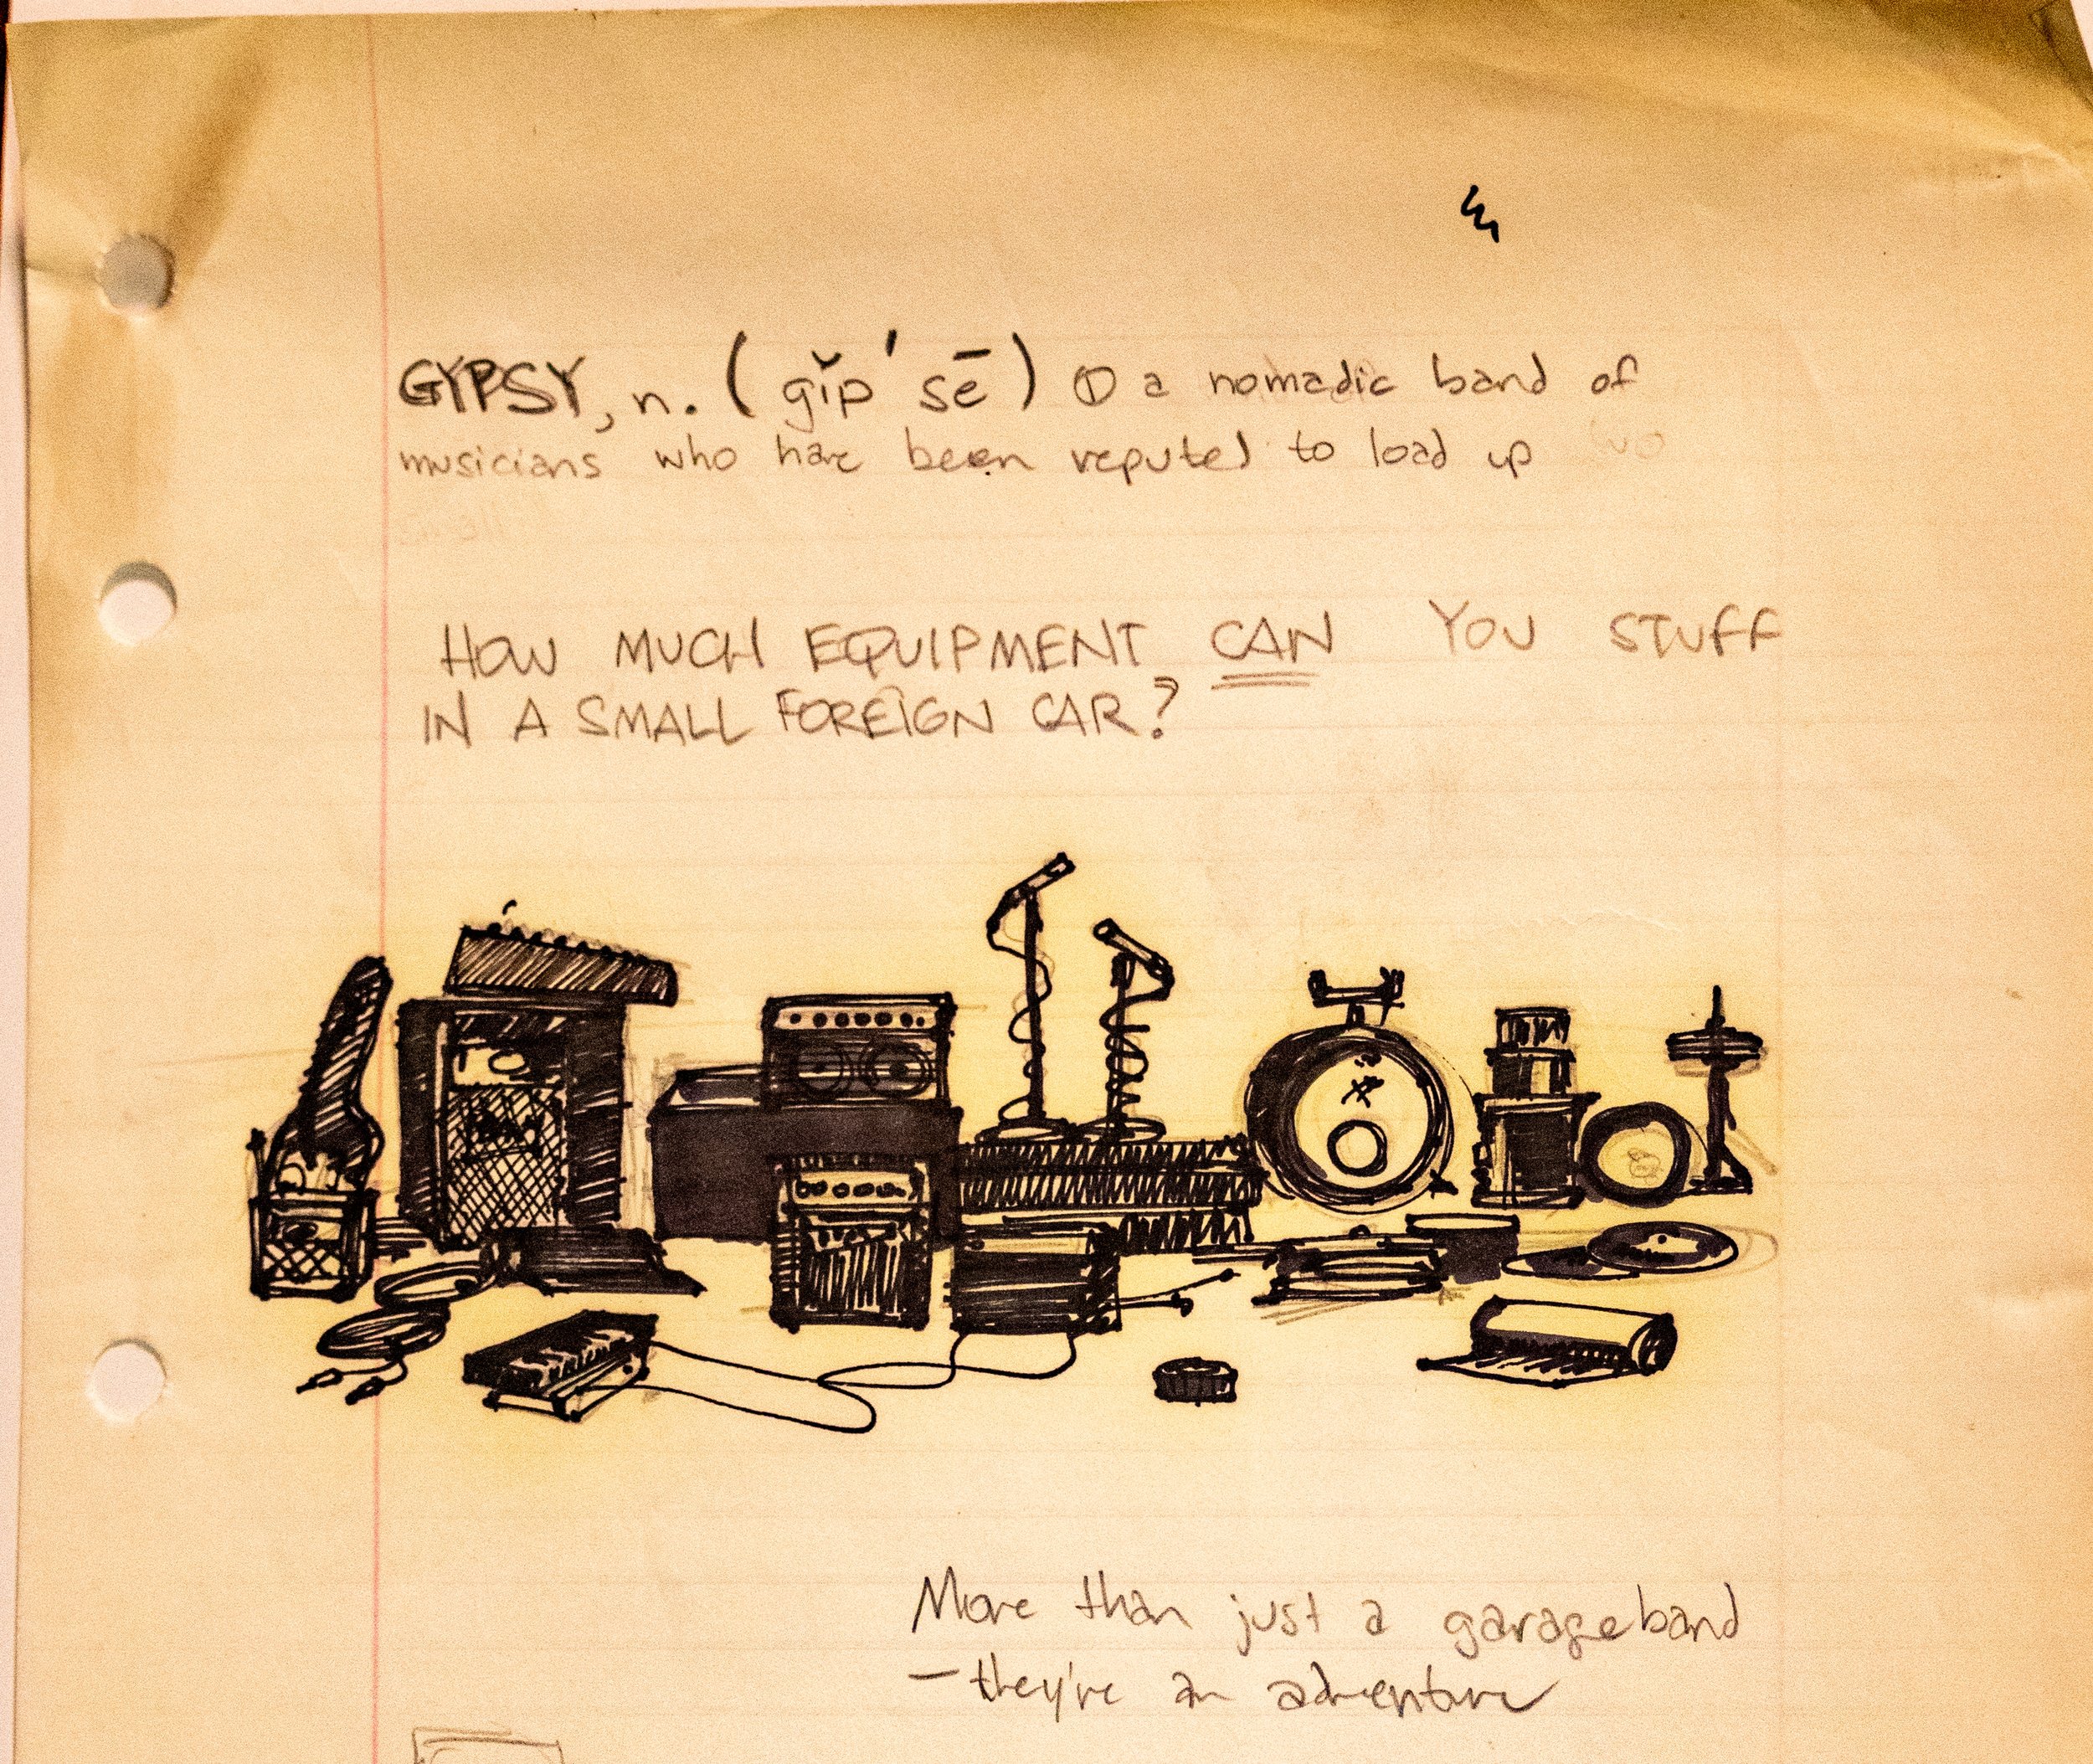 GYPSY, n. (gĭp' sē) ① a nomadic band of
musicians who have been reputed to load up
HOW MUCH EQUIPMENT CAN YOU STUFF
IN A SMALL FOREIGN CAR?
More than just a garageband
— they're an adventure